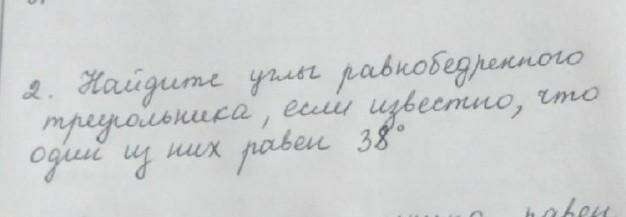 2. Найдите углы равнобедренного
треугольника, если известно, что
один из них равен 38°
равен